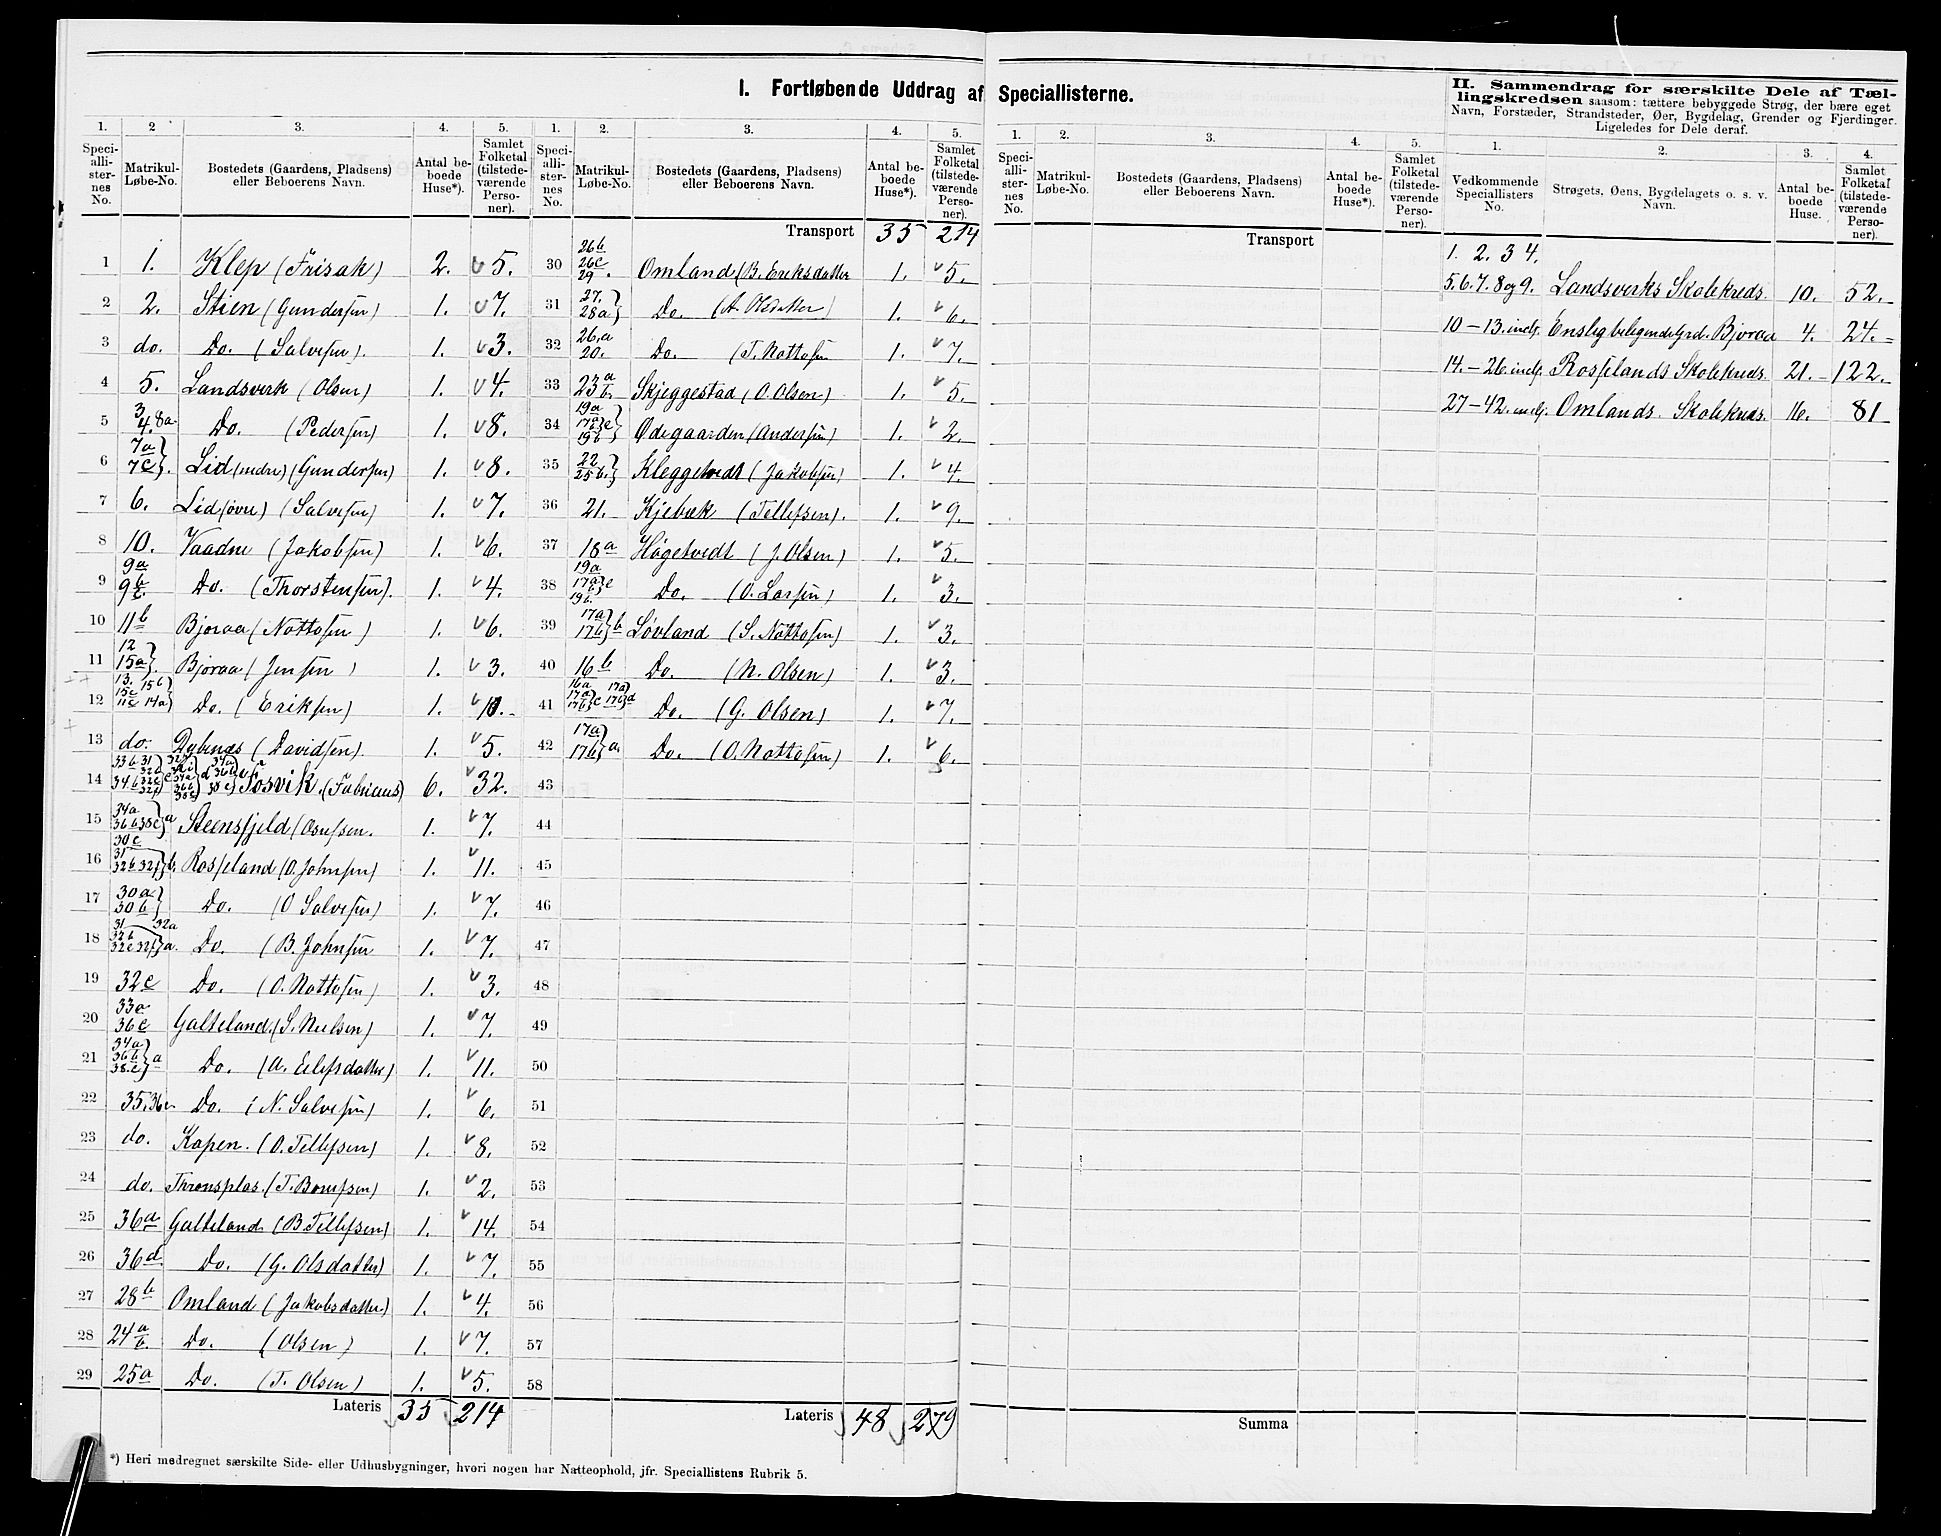 I. Fortløbende Uddrag af Speciallisterne.
1. 2 3. 4. 5.
Speciallisternes No. Matrikul-Løbe-No. Bostedets (Gaardens, Pladsens) eller Beboerens Navn. Antal beboede Huse*). Samlet Folketal (tilstedeværende Personer).
1 1. Klep (Frisak) 2. 5.
2 2. Stien (Gundersen) 1. 7.
3 do. Do. (Salvesen). 1. 3.
4 5. Landsverk (Olsen) 1. 4.
5 3 4. 8a. Do. (Pedersen) 1. 8.
6 7a 7c}. Lid (nedre) (Gundersen) 1. 8.
7 6. Lid (øvre) (Salvesen) 1. 7.
8 10. Vaadne (Jakobsen) 1. 6.
9 9a 9b c. Do. (Thorstensen). 1. 4.
10 11b Bjoraa (Nottosen) 1. 6.
11 12 15a}. Bjoraa (Jensen) 1. 3.
12 13. 15b 15c 11c 14a} Do. (Eriksen) 1. 10.
13 do. Dybenæs (Davidsen). 1. 5.
14 Fosvik. (Fabricius) 6. 32.
15 34a 36b 38c} a Steensfjeld (Osufsen. 1. 7.
16 30c 31 32b 32f} b. Rosseland (O. Johnsen) 1. 11.
17 30a 30b} Do. (O Salvesen) 1. 7.
18 31 32a 32b 32c 32f} a. Do. (B. Johnsen 1. 7.
19 32e Do. (O. Nottosen) 1. 3.
20 33a 36c Galteland. (S. Nielsen) 1. 7.
21 34a 36b 38.c} a Do. (A. Eilefsdatter) 1. 11.
22 35. 36e. Do. (N. Salvesen) 1. 6.
23 do. Kapen. (O. Tellefsen) 1. 8.
24 do. Thronsplas. (T. Borufsen) 1. 2.
25 36d Galteland (B. Tellefsen) 1. 14.
26 36d. Do. (G. Olsdatter) 1. 7.
27 28b Omland (Jakobsdatter) 1. 4.
28 24a b. Do. (Olsen) 1. 7.
29 25a Do. (T. Olsen) 1. 5.
Lateris 35 214
1. 2. 3. 4. 5.
Speciallisternes No. Matrikul-Løbe-No. Bostedets (Gaardens, Pladsens) eller Beboerens Navn. Antal beboede Huse*). Samlet Folketal (tilstedeværende Personer).
Transport 35 214
30 26b 26c 29. Omland (B. Eriksdatter 1. 5.
31 27. 28a} Do. (A. Olsdatter) 1. 6.
32 26.a 20. Do. (T. Nottosen 1. 7.
33 23a b. Skjeggestad (O. Olsen) 1. 5.
34 19a 17a c 19b} Ødegaarden (Andersen) 1. 2.
35 22 25b.} Kleggetvedt (Jakobsen) 1. 4.
36 21. Kjebæk (Tellefsen). 1. 9.
37 18a Høgetvedt (J. Olsen) 1. 5.
38 19a 17a c 19b. Do. (O. Larsen) 1. 3.
39 17a 17b} b Løvland (S. Nottosen) 1. 3.
40 16b Do. (N. Olsen) 1. 3.
41 16a 17a 17b} c 17a 17b} d Do. (G. Olsen) 1. 7.
42 17a 17b} a. Do. (O. Nottosen) 1. 6.
43
44
45
46
47
48
49
50
51
52
53
54
55
56
57
58
Lateris 48 279
*) Heri medregnet særskilte Side- eller Udhusbygninger, hvori nogen har Natteophold, jfr. Speciallistens Rubrik 5.
1. 2. 3. 4. 5.
Speciallisternes No. Matrikul-Løbe-No. Bostedets (Gaardens, Pladsens) eller Beboerens Navn. Antal beboede Huse*). Samlet Folketal (tilstedeværende Personer).
Transport
Summa
II. Sammendrag for særskilte Dele af Tællingskredsen saasom: tættere bebyggede Strøg, der bære eget
Navn, Forstæder, Strandsteder, Øer, Bygdelag, Grender og Fjerdinger.
Ligeledes for Dele deraf.
1. 2. 3. 4.
Vedkommende Speciallisters No. Strøgets, Øens, Bygdelagets o. s. v. Navn. Antal beboede Huse. Samlet Folketal (tilstedeværende Personer).
1. 2. 3 4.
5. 6. 7. 8 og 9. Landsverks Skolekreds. 10. 52.
10 - 13. incl. Ensligbeliggende Grd. Bjoraa 4. 24.
14. - 26. incl. Rosselands Skolekreds. 21. 122.
27 - 42. incl. Omlands. Skolekreds. 16. 81